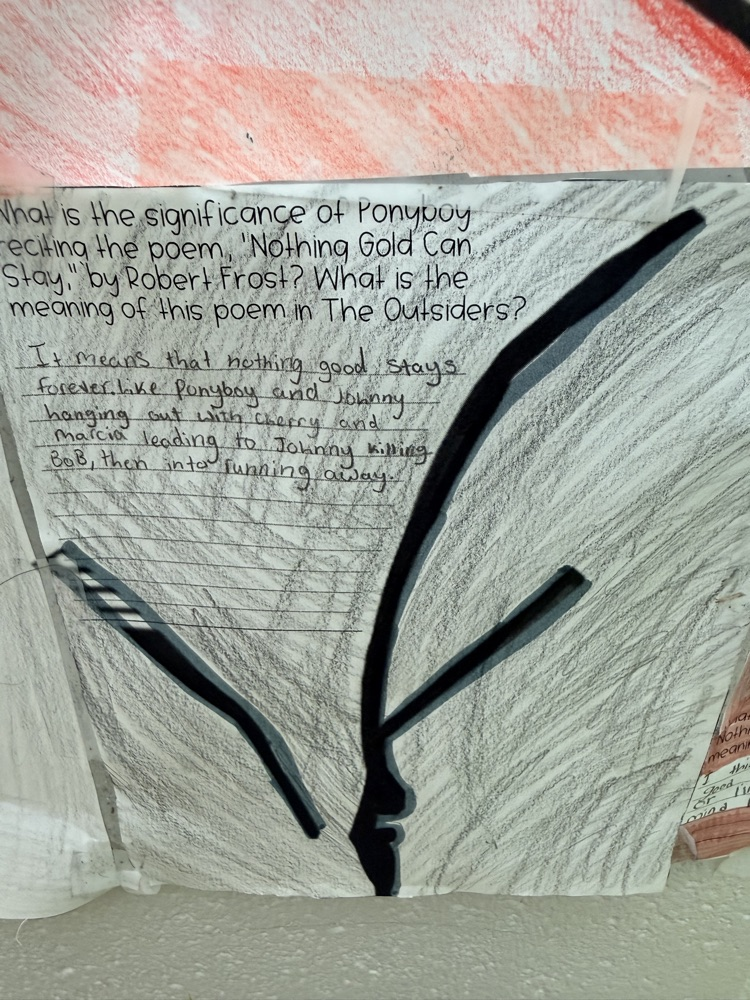 What is the significance of Ponyboy
reciting the poem, "Nothing Gold Can
Stay," by Robert Frost? What is the
meaning of this poem in The Outsiders?
It means that nothing good stays
forever. like Ponyboy and Johnny
hanging out with Cherry and
Marcia leading to Johnny killing
BoB, then into running away.
Nothi
meani
I thi
good
or
mind